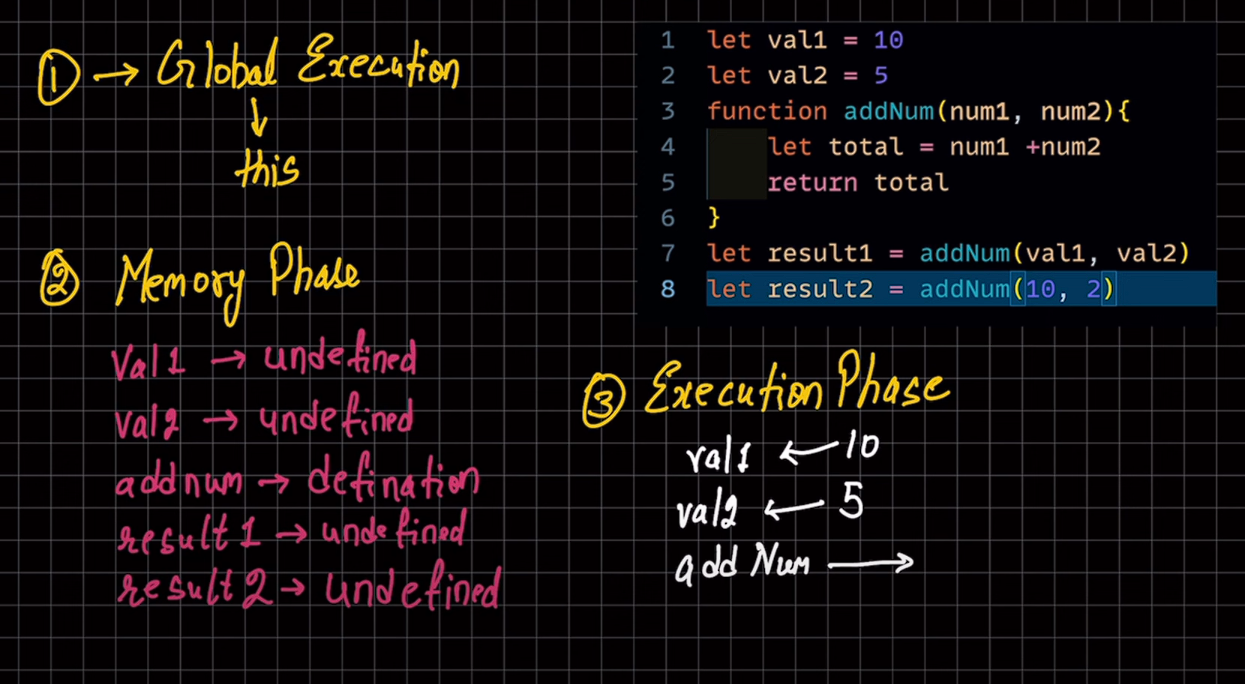 ① → Global Execution
↓
this
② Memory Phase
Val1 → undefined
val2 → undefined
addnum → defination
result1 → undefined
result2 → undefined
1 let val1 = 10
2 let val2 = 5
3 function addNum(num1, num2){
4 let total = num1 +num2
5 return total
6 }
7 let result1 = addNum(val1, val2)
8 let result2 = addNum(10, 2)
③ Execution Phase
val1 ← 10
val2 ← 5
add Num →